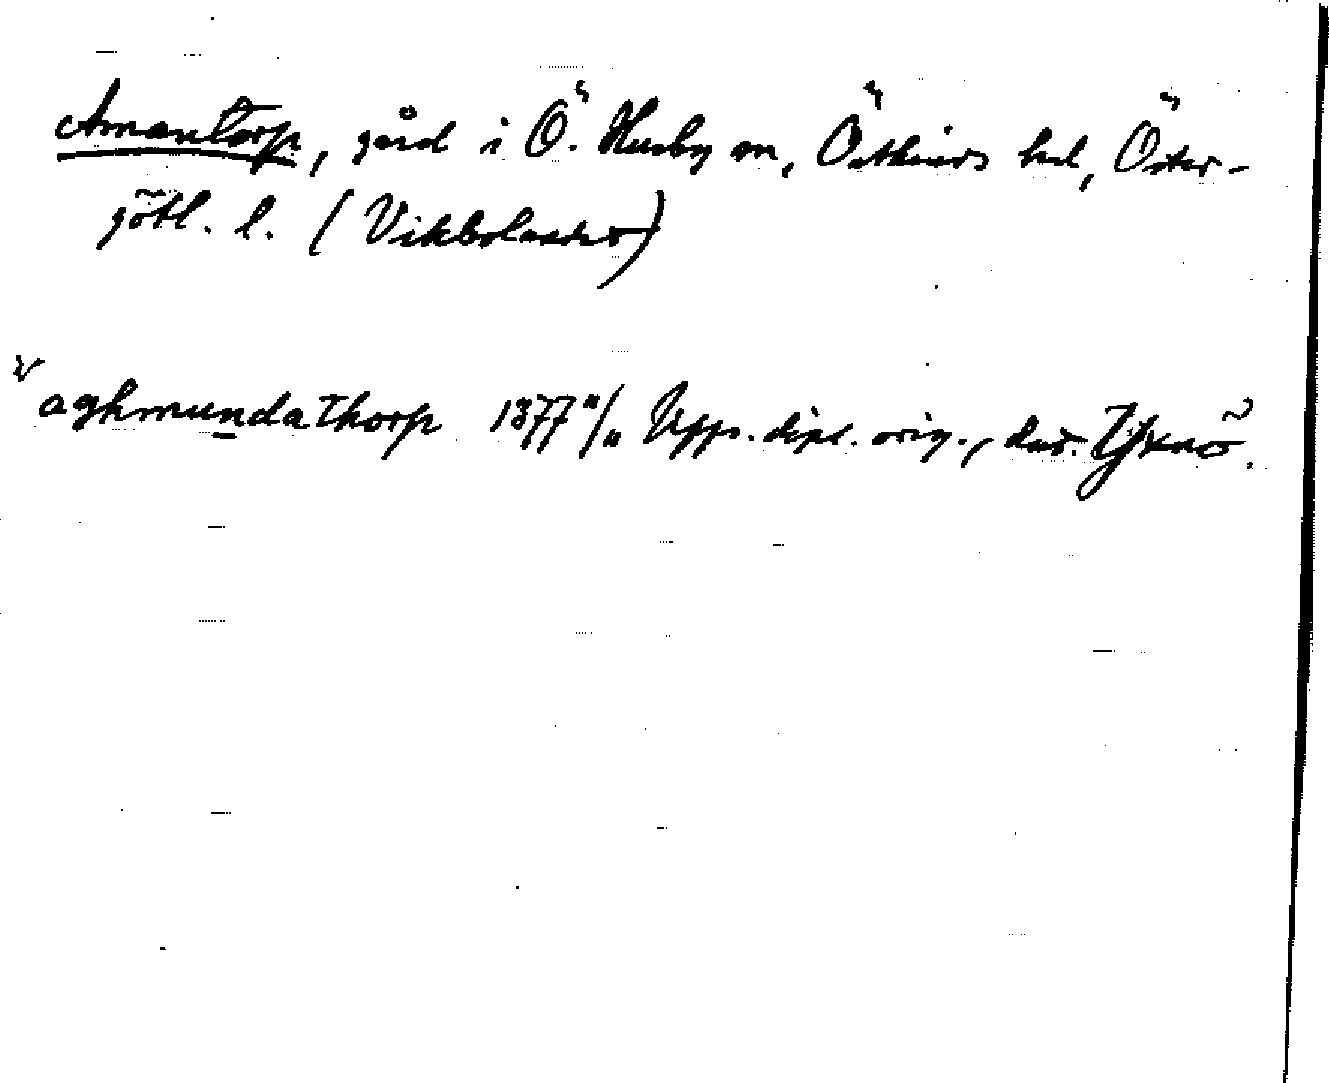 Amantorp, gård i Ö. Husby sn, Östkinds hd, Öster-
götl. l. (Vikbolandet)
aghmundathorp 1377 Upps. dipl. orig., dat. Tyknö.